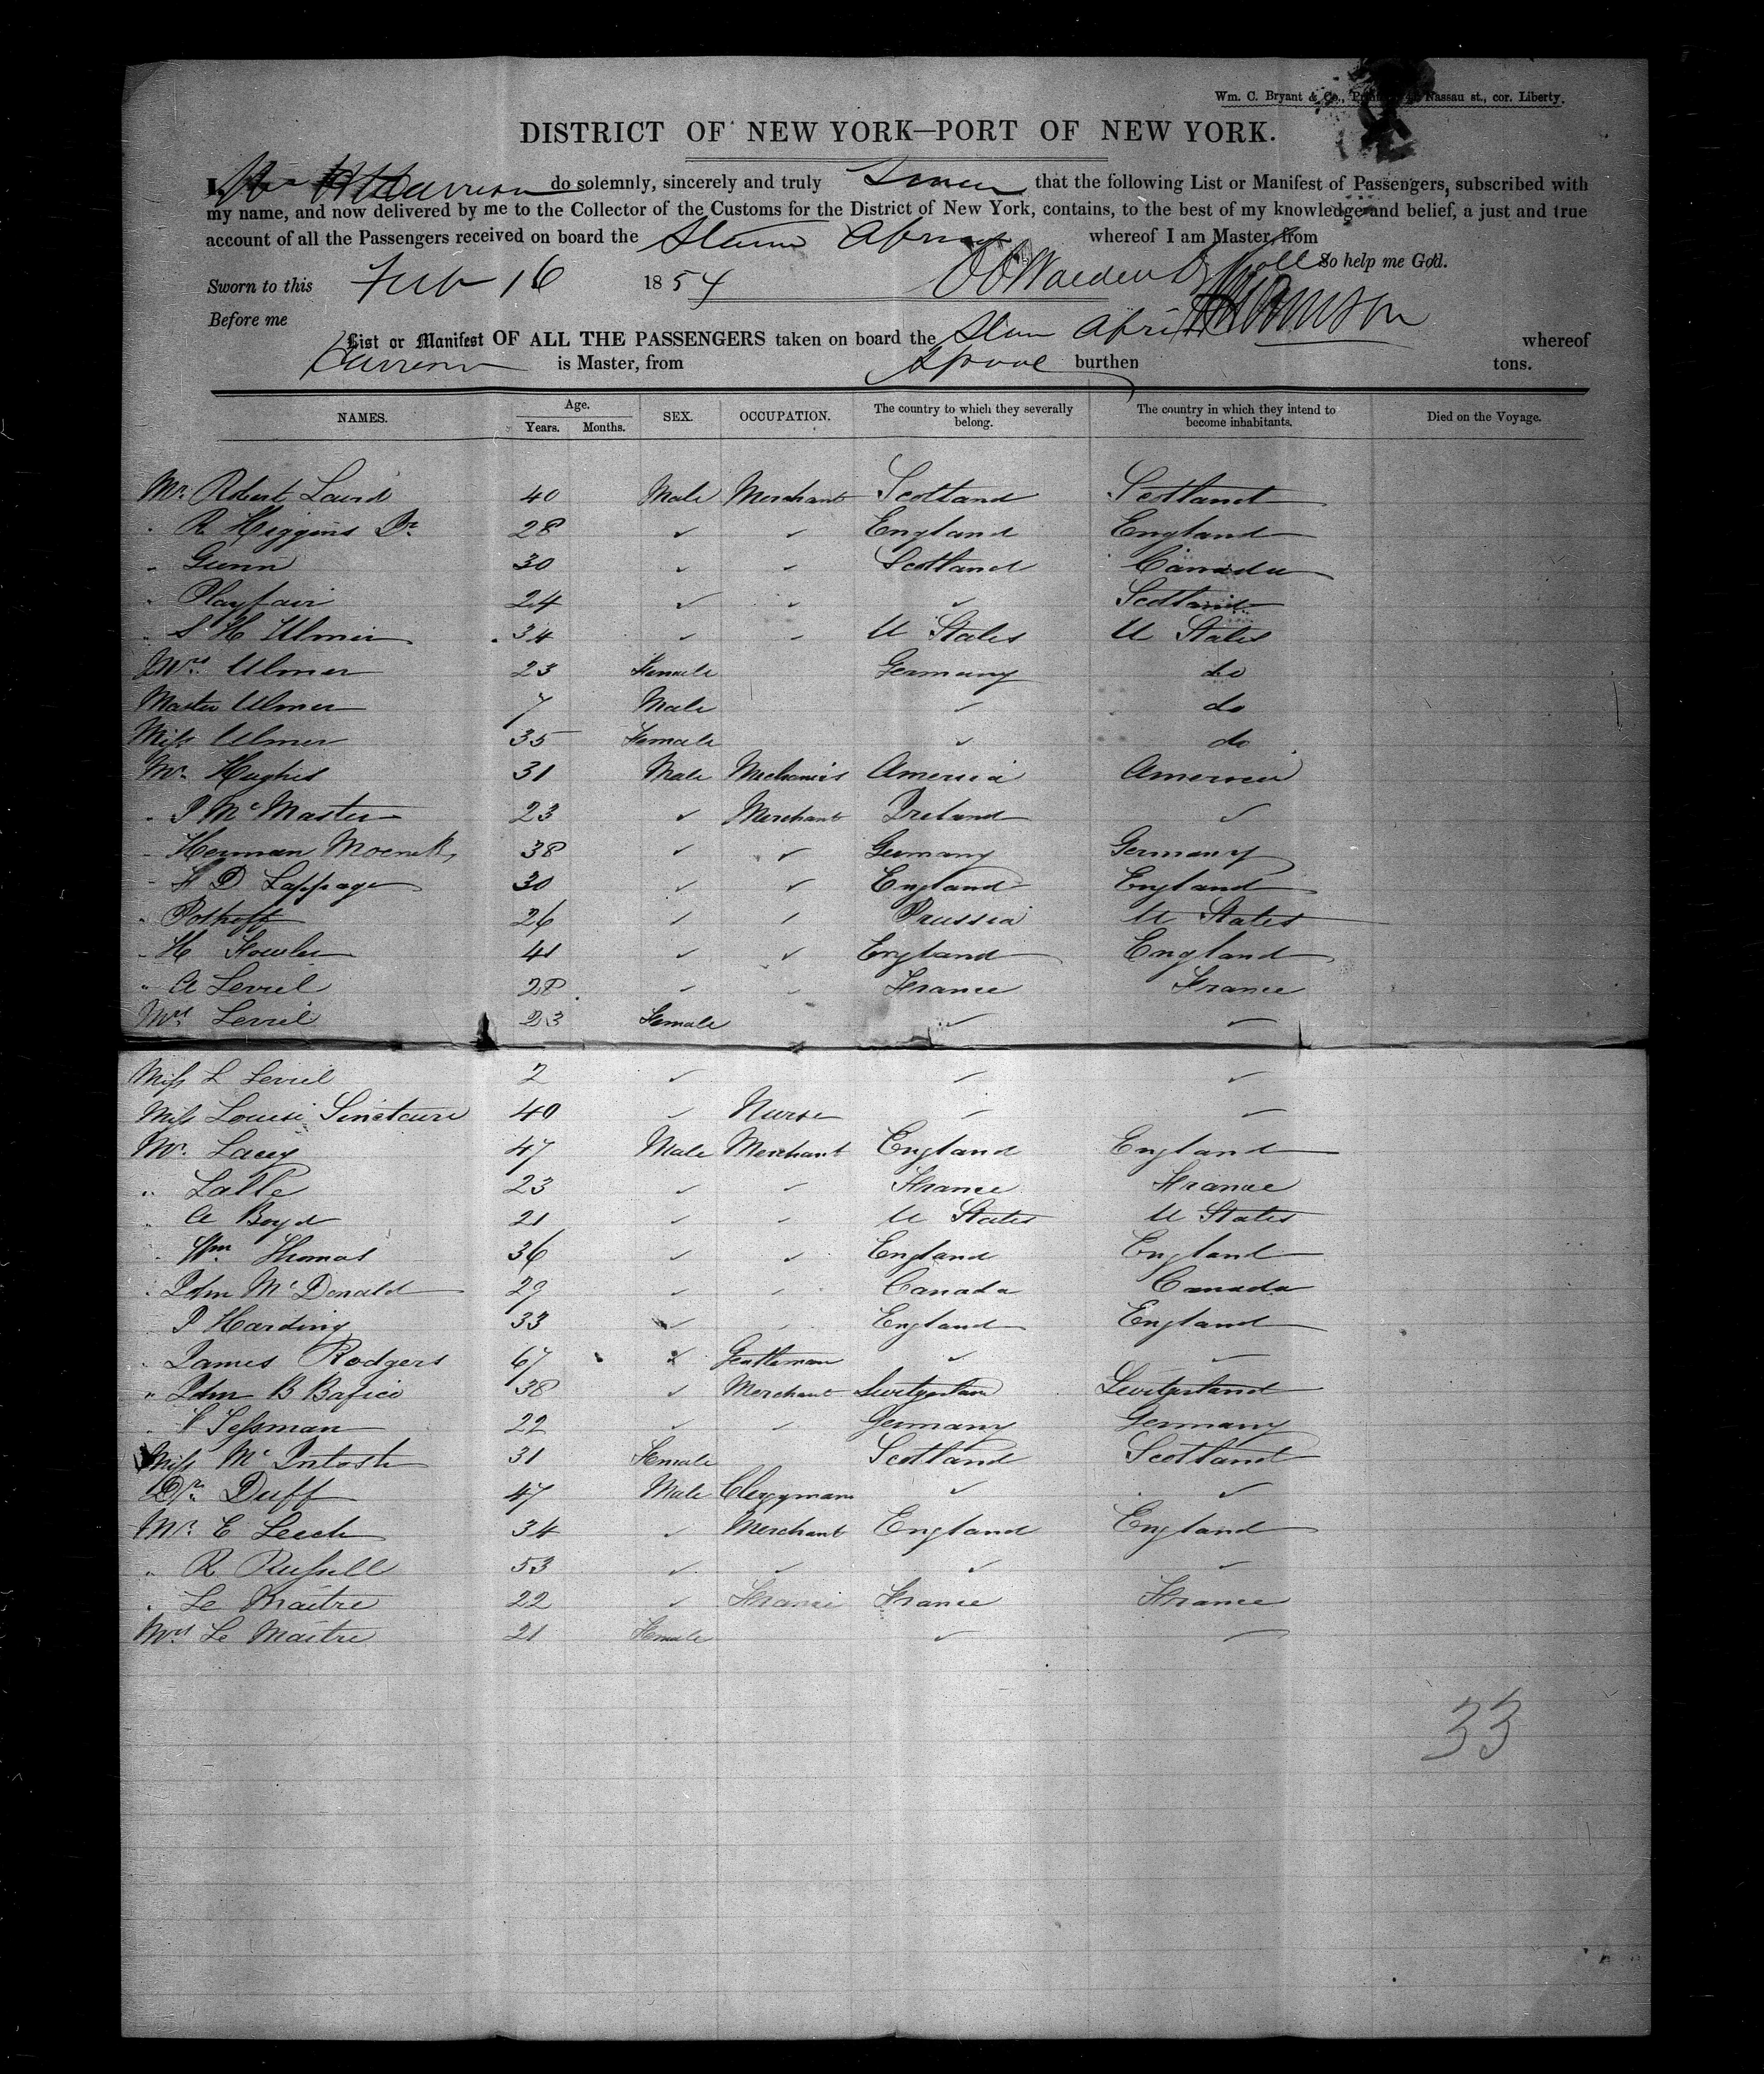 Wm. C. Bryant & Co., Nassau st., cor. Liberty.
DISTRICT OF NEW YORK—PORT OF NEW YORK.
I, Harrison do solemnly, sincerely and truly Swear that the following List or Manifest of Passengers, subscribed with
my name, and now delivered by me to the Collector of the Customs for the District of New York, contains, to the best of my knowledge and belief, a just and true
account of all the Passengers received on board the Steamr Africa whereof I am Master, from
So help me God.
Sworn to this Feb 16 1854
Before me Harrison
List or Manifest OF ALL THE PASSENGERS taken on board the Steam Africa whereof
Harrison is Master, from Lpool burthen tons.
NAMES. Age. Years. Months. SEX. OCCUPATION. The country to which they severally belong. The country in which they intend to become inhabitants. Died on the Voyage.
Mr. Robert Laird 40 Male Merchant Scotland Scotland
" R Higgins Dr. 28 ✓ ✓ England England
" Gunn 30 ✓ ✓ Scotland Canada
" Playfair 24 ✓ ✓ ✓ Scotland
" S H Ulmer 34 ✓ ✓ U States U States
Mrs. Ulmer 23 Female Germany do
Master Ulmer 7 Male ✓ do
Miss Ulmer 35 Female ✓ do
Mr. Hughes 31 Male Mechanics America America
" J McMaster 23 ✓ Merchant Ireland ✓
" Herman 38 ✓ ✓ Germany Germany
" F D Lappage 30 ✓ ✓ England England
" Pothoff 26 ✓ ✓ Prussia U States
" H Fowler 41 ✓ ✓ England England
" A Leviel 28 ✓ ✓ France France
Mrs. Leviel 23 Female ✓ ✓
Miss L Leviel 2 ✓ ✓ ✓
Miss Louise 40 ✓ Nurse ✓ ✓
Mr. Lacey 47 Male Merchant England England
" Lalle 23 ✓ ✓ France France
" A Boyd 21 ✓ ✓ U States U States
" Wm. Thomas 36 ✓ ✓ England England
" John McDonald 29 ✓ ✓ Canada Canada
J Harding 33 ✓ ✓ England England
" James Rodgers 67 ✓ Gentleman ✓ ✓
" John B Bafico 38 ✓ Merchant Switzerland Switzerland
" Tessman 22 ✓ ✓ Germany Germany
Miss McIntosh 31 Female Scotland Scotland
Dr. Duff 47 Male Clergyman ✓ ✓
Mr. E Leech 34 ✓ Merchant England England
" R Russell 53 ✓ ✓ ✓ ✓
" Le Maitre 22 ✓ France France France
Mrs Le Maitre 21 Female ✓ ✓
33